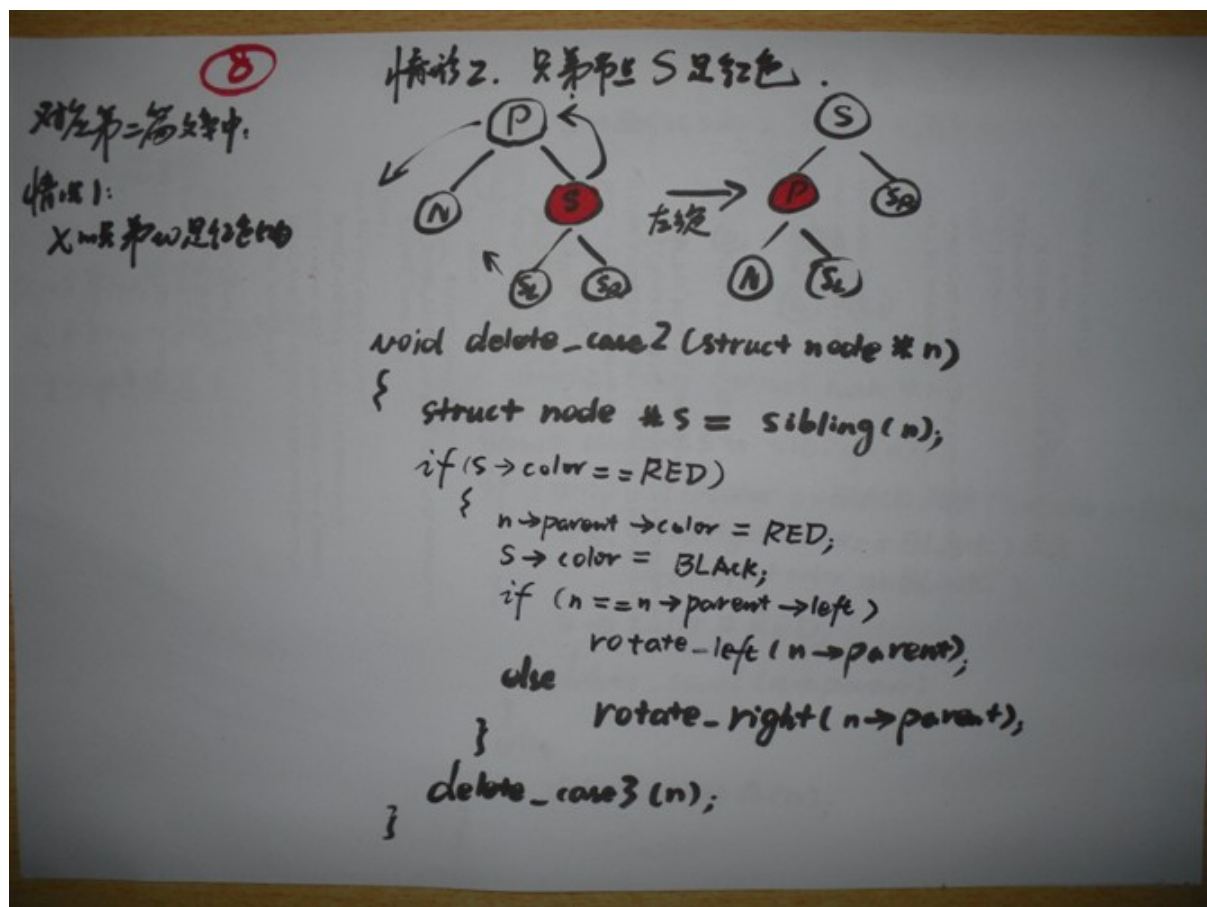 8
对应第二篇文章中:
情况1:
x的兄弟w是红色的
情形2. 兄弟节点S是红色.
P
N
S
SL
SR
左旋
S
P
SR
N
SL
void delete_case2 (struct node *n)
{
struct node *s = sibling(n);
if (s→color == RED)
{
n→parent→color = RED;
s→color = BLACK;
if (n == n→parent→left)
rotate_left (n→parent);
else
rotate_right (n→parent);
}
delete_case3 (n);
}